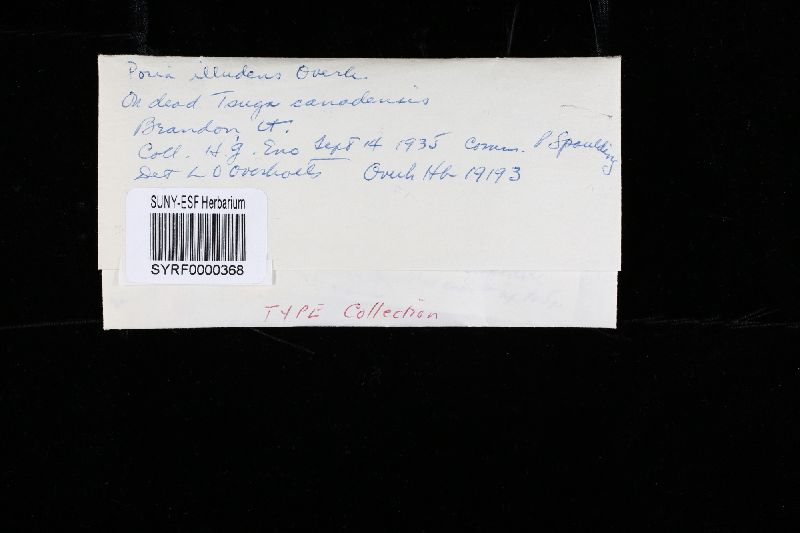 Poria illudens Overh.
On dead Tsuga canadensis
Brandon, Vt.
Coll. H.G. Eno Sept 14 1935 Comm. P Spaulding
Det L O Overholts Overh Hb 19193
SUNY-ESF Herbarium
SYRF0000368
TYPE Collection